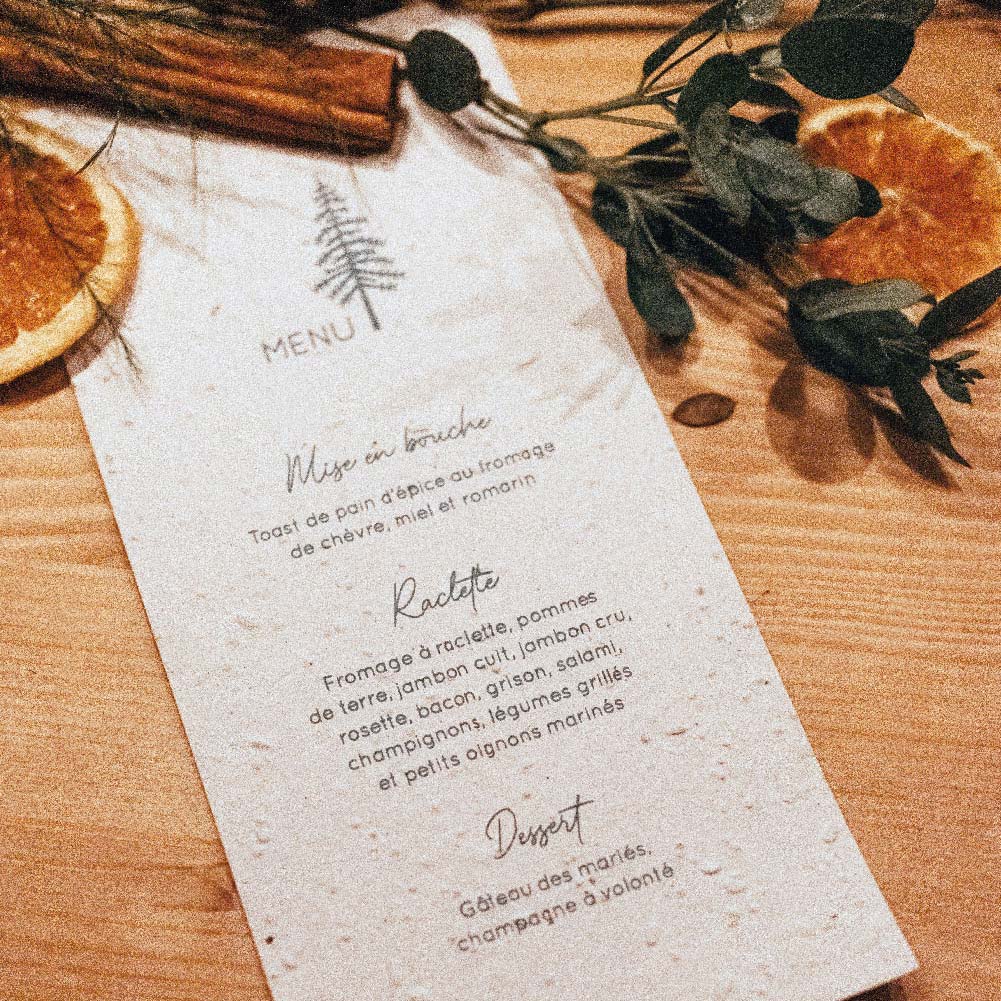 MENU
Mise en bouche
Toast de pain d'épice au fromage
de chèvre, miel et romarin
Raclette
Fromage à raclette, pommes
de terre, jambon cuit, jambon cru,
rosette, bacon, grison, salami,
champignons, légumes grillés
et petits oignons marinés
Dessert
Gâteau des mariés,
champagne à volonté